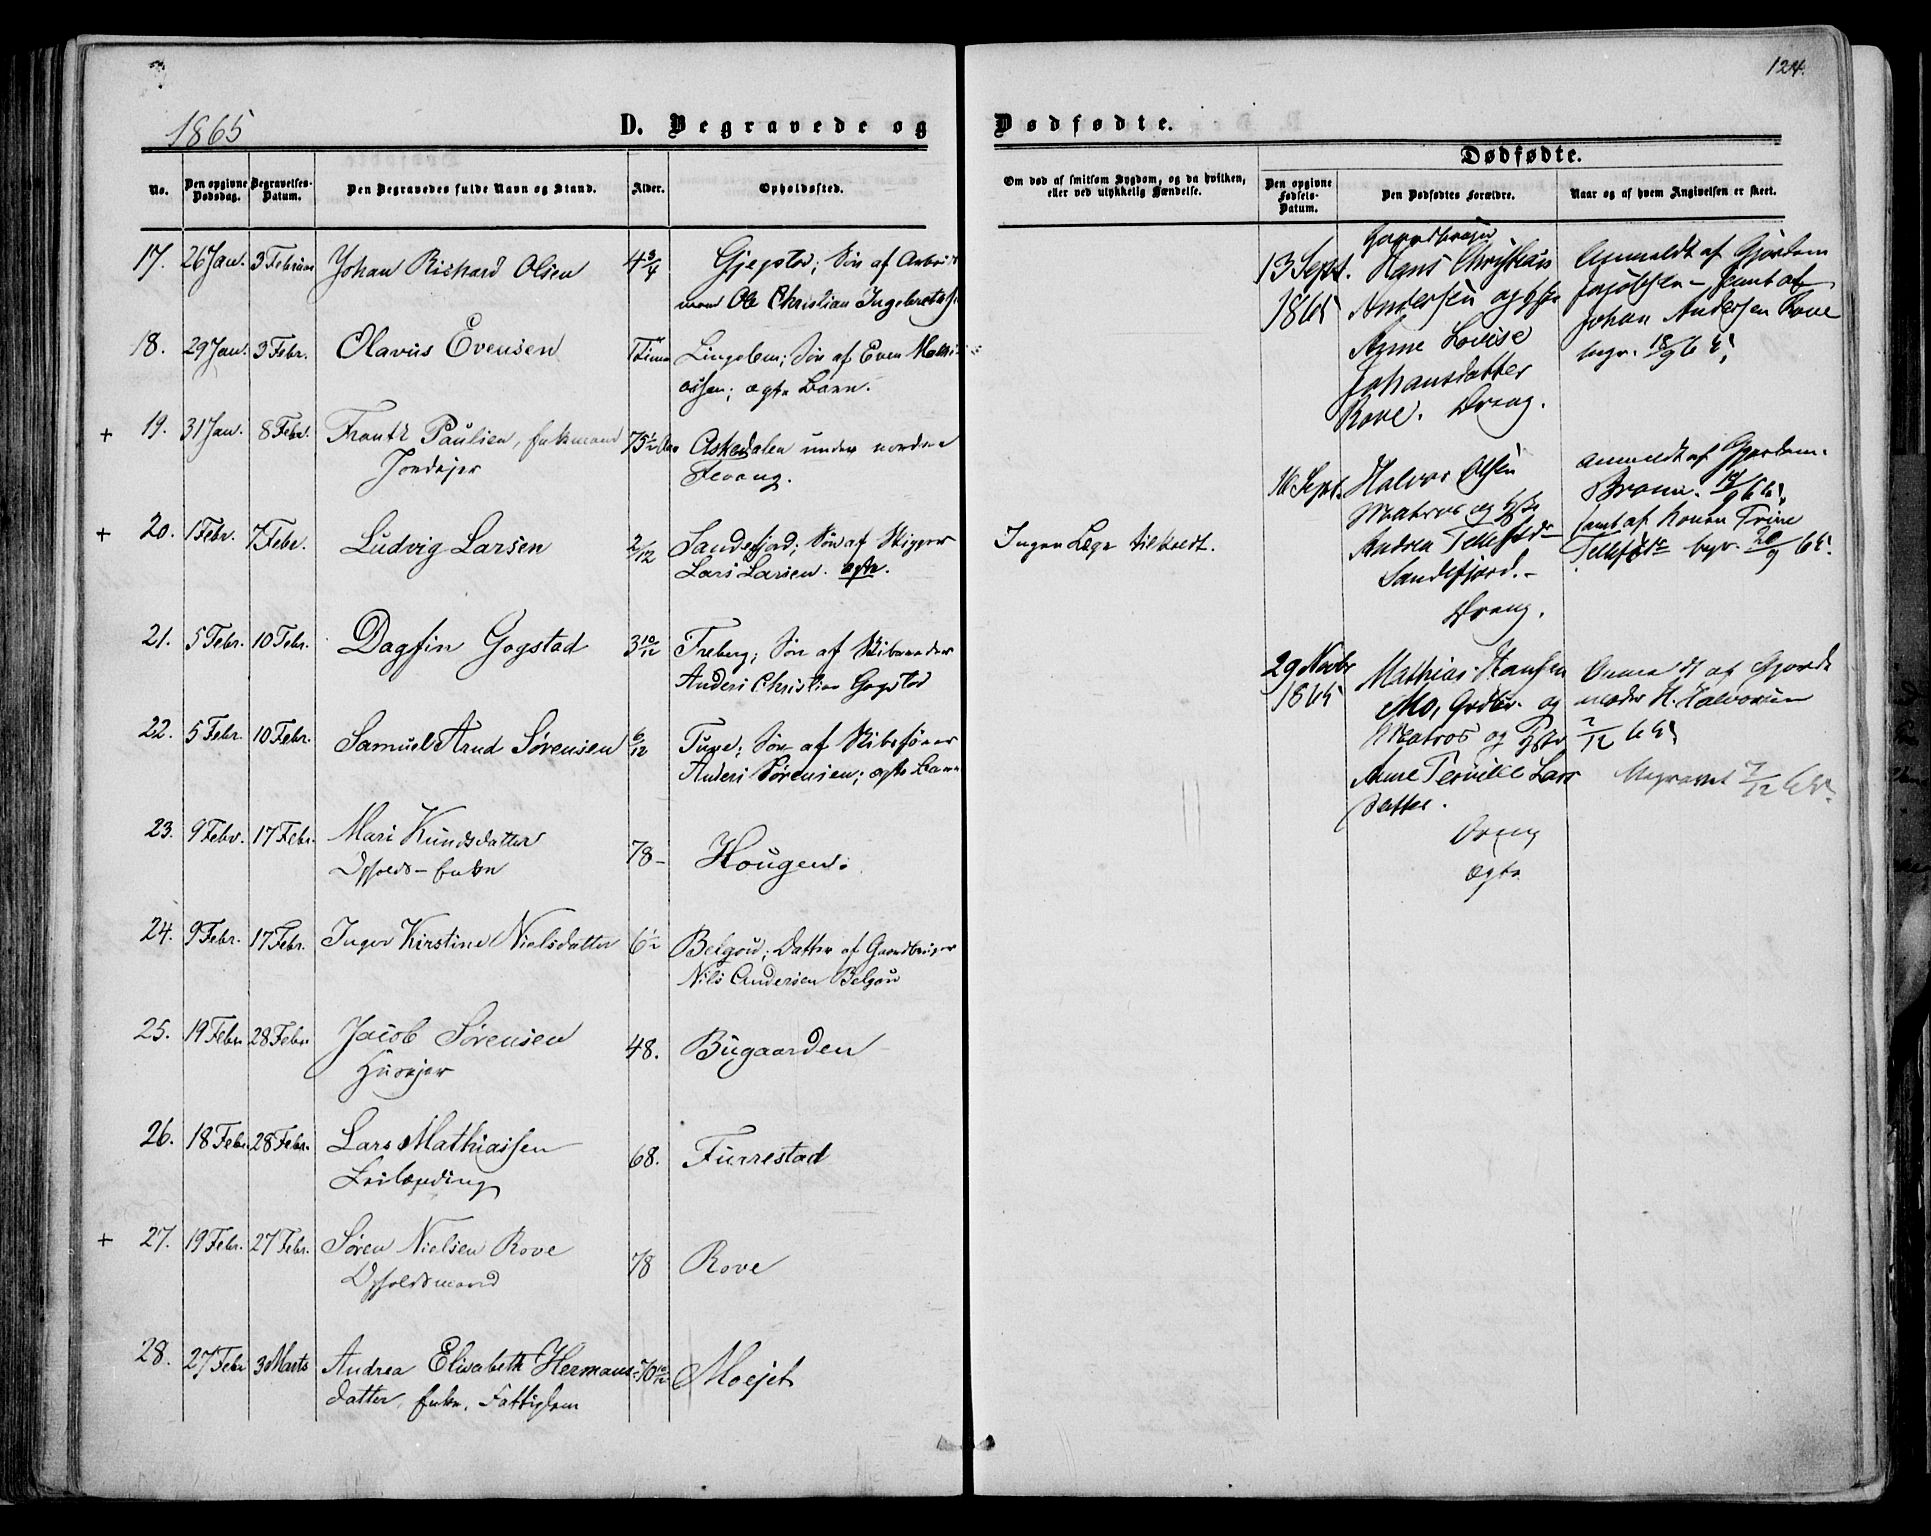 124.
1865
D. Begravede og
Dødfødte.
Dødfødte.
No.
Den opgivne Dødsdag.
Begravelses-Datum.
Den Begravedes fulde Navn og Stand.
Alder.
Opholdssted.
Om død af smitsom Sygdom, og da hvilken,
eller ved ulykkelig Hændelse.
Den opgivne Fødsels-Datum.
Den Dødfødtes Forældre.
Naar og af hvem Angivelsen er skeet.
17. 26 Jan. 3 Februar Johan Richard Olsen 4 3/4 Gjepstad; Søn af Arbeids
mand Ole Christian Ingebretss
18. 29 Jan. 3 Febr. Olavus Evensen Lingelem; Søn af Even Mathi
assen; ægte Barn.
+ 19. 31 Jan. 8 Febr. Frantz Paulsen, Enkemand 75 1/2 Aar Askedalen under nordre
Jordejer
Fevang.
+ 20. 1 Febr. 7 Febr. Ludvig Larsen 2/12 Sandefjord; Søn af Skipper
Lars Larsen. ægte.
Ingen Læge tilkaldt.
21. 5 Febr. 10 Febr. Dagfin Gogstad 3 10/12 Freberg; Søn af Skibsreder
Anders Christian Gogstad
22. 5 Febr. 10 Febr. Samuel Arnd Sørensen 6/12 Tuve; Søn af Skibsfører
Anders Sørensen; ægte Barn
23. 9 Febr. 17 Febr. Mari Knudsdatter 78 Hougen.
Opholds-Enke
24. 9 Febr. 17 Febr. Inger Kirstine Nielsdatter 6 1/2 Belgau; Datter af Gaardbruger
Nils Andersen Belgau
25. 19 Febr 28 Febr Jacob Sørensen 48. Bugaarden
Husejer
26. 18 Febr 28 Febr. Lars Mathiassen 68. Furrestad
Leilænding
+ 27. 19 Febr. 27 Febr. Søren Nielsen Rove 78 Rove
Opholdsmand
28. 27 Febr 3 Marts Andrea Elisabeth Hermans- 70 10/12 Moejet
datter, Enke, Fattiglem
13 Sept. 1865
Gaardbruger
Hans Christian
Andersen og Hstr
Anne Lovise
Johansdatter
Rove. Dreng.
Anmeldt af Gjordem
samt af
Johan Andersen Rove
begr. 18/9 65
16 Sept. Halvor Olsen
Matros og Hstr
Andrea Tellefsd-
Sandefjord.-
Dreng.
Anmeldt af Gjordem.
Bronn. 19/9 65
samt af Konen Trine
begr. 20/9 65.
29 Novbr 1865
Mathias Hansen
Mo, Grdbr. og
Matros og Hstr
Anne Lars
datter.
Dreng
ægte
Anmeldt af Gjorde
moder H. Halvorsen
2/12 65
Begravet 7/12 65.